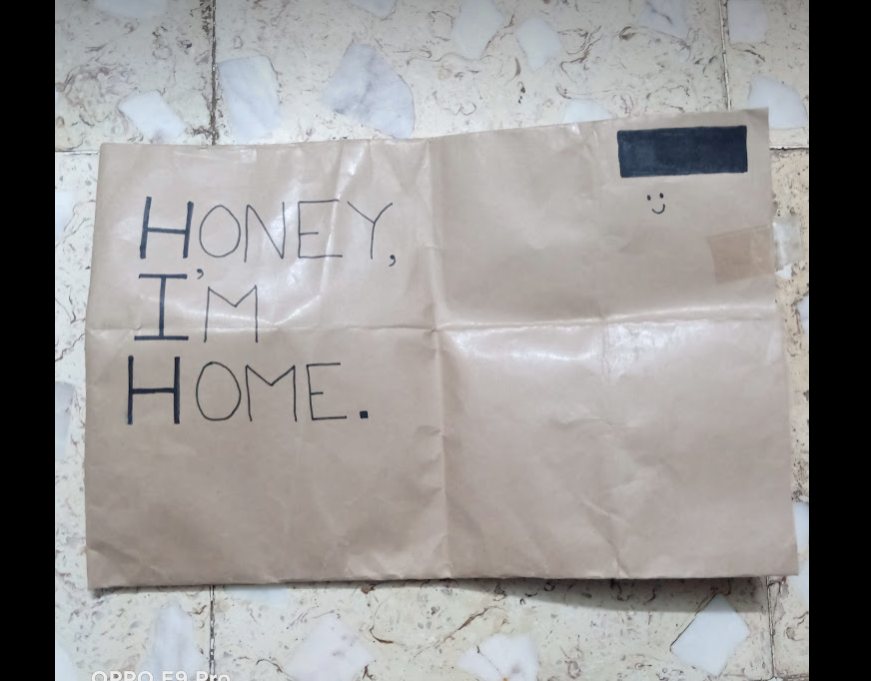 HONEY,
I'M
HOME.
OPPO F9 Pro